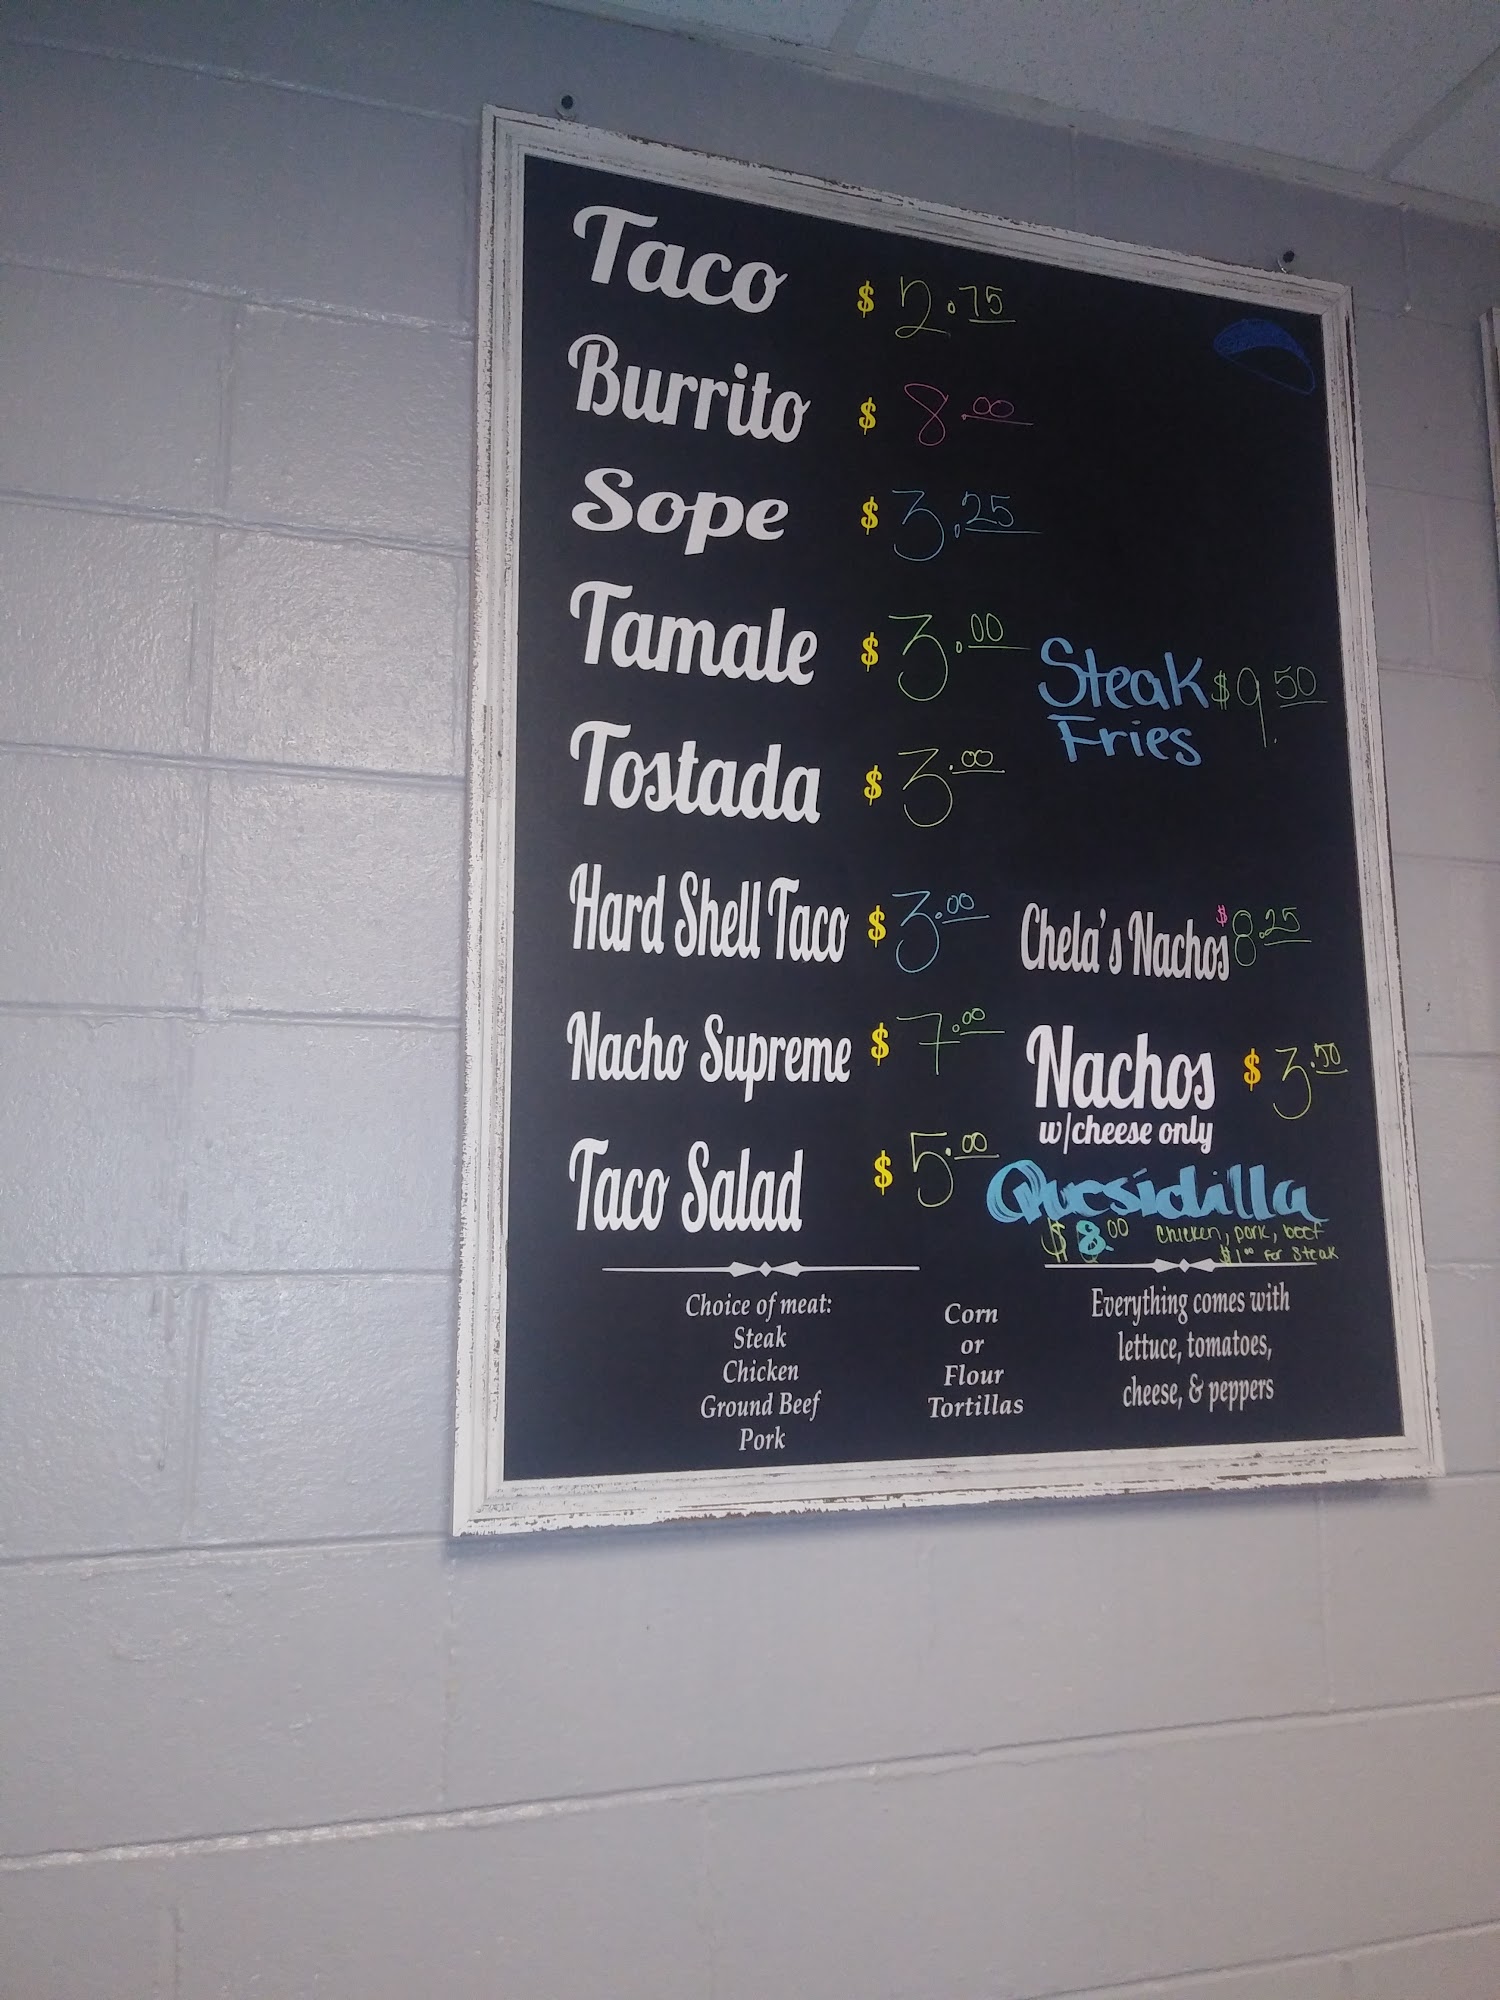 Taco $ 2.75
Burrito $ 8.00
Sope $ 3.25
Tamale $ 3.00
Tostada $ 3.00
Hard Shell Taco $ 3.00
Nacho Supreme $ 7.00
Taco Salad $ 5.00
Steak $ 9.50
Fries
Chela's Nachos $ 8.25
Nachos $ 3.50
w/cheese only
Quesidilla
$ 8.00 chicken, pork, beef
$1.00 for steak
Choice of meat:
Steak
Chicken
Ground Beef
Pork
Corn
or
Flour
Tortillas
Everything comes with
lettuce, tomatoes,
cheese, & peppers